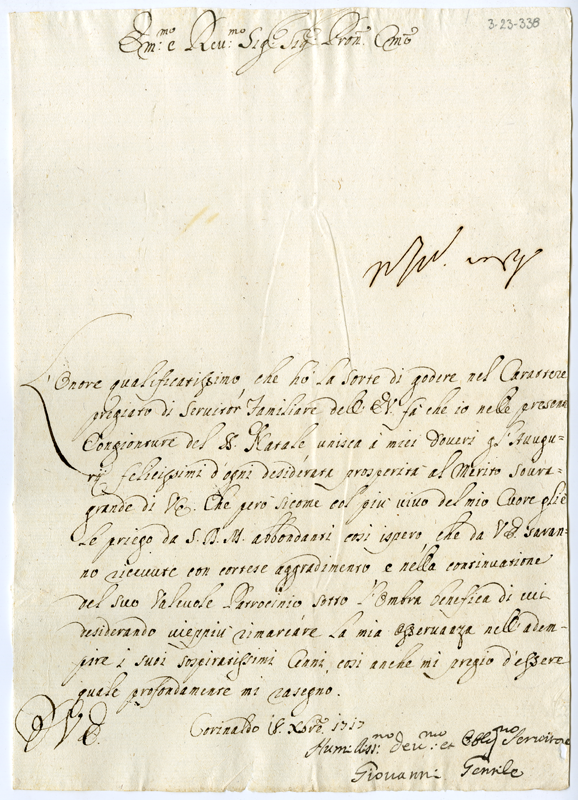 3-23-338
Em:mo e Reu:mo Sigr Sigr Pron: Cmo
L'Onore qualificatissimo, che hò la sorte di godere nel Carattere
pregiato di Seruitor Familiare dell' E.V. fà che io nelle presenti
Congionture del S. Natale unisca a miei doueri gl'Augu-
rij felicissimi d'ogni desiderata prosperità al Merito Soura-
grande di V.E. Che però sicome col più viuo del mio Cuore gliè
le priego da S.D.M. abbondanti così ispero, che da V.E. saran-
no riceuute con cortese aggradimento e nella continuazione
del suo Valeuole Patrocinio sotto l'Ombra benefica di cui
desiderando vieppiù rimarcare la mia osseruanza nell'adem-
pire i suoi sospiratissimi Cenni, così anche mi pregio d'essere
quale profondamente mi rasegno.
V.E.
Corinaldo 18. Xbre 1717
Humiliss:mo deu:mo et Obblig:mo Seruitore
Giovanni Gentile